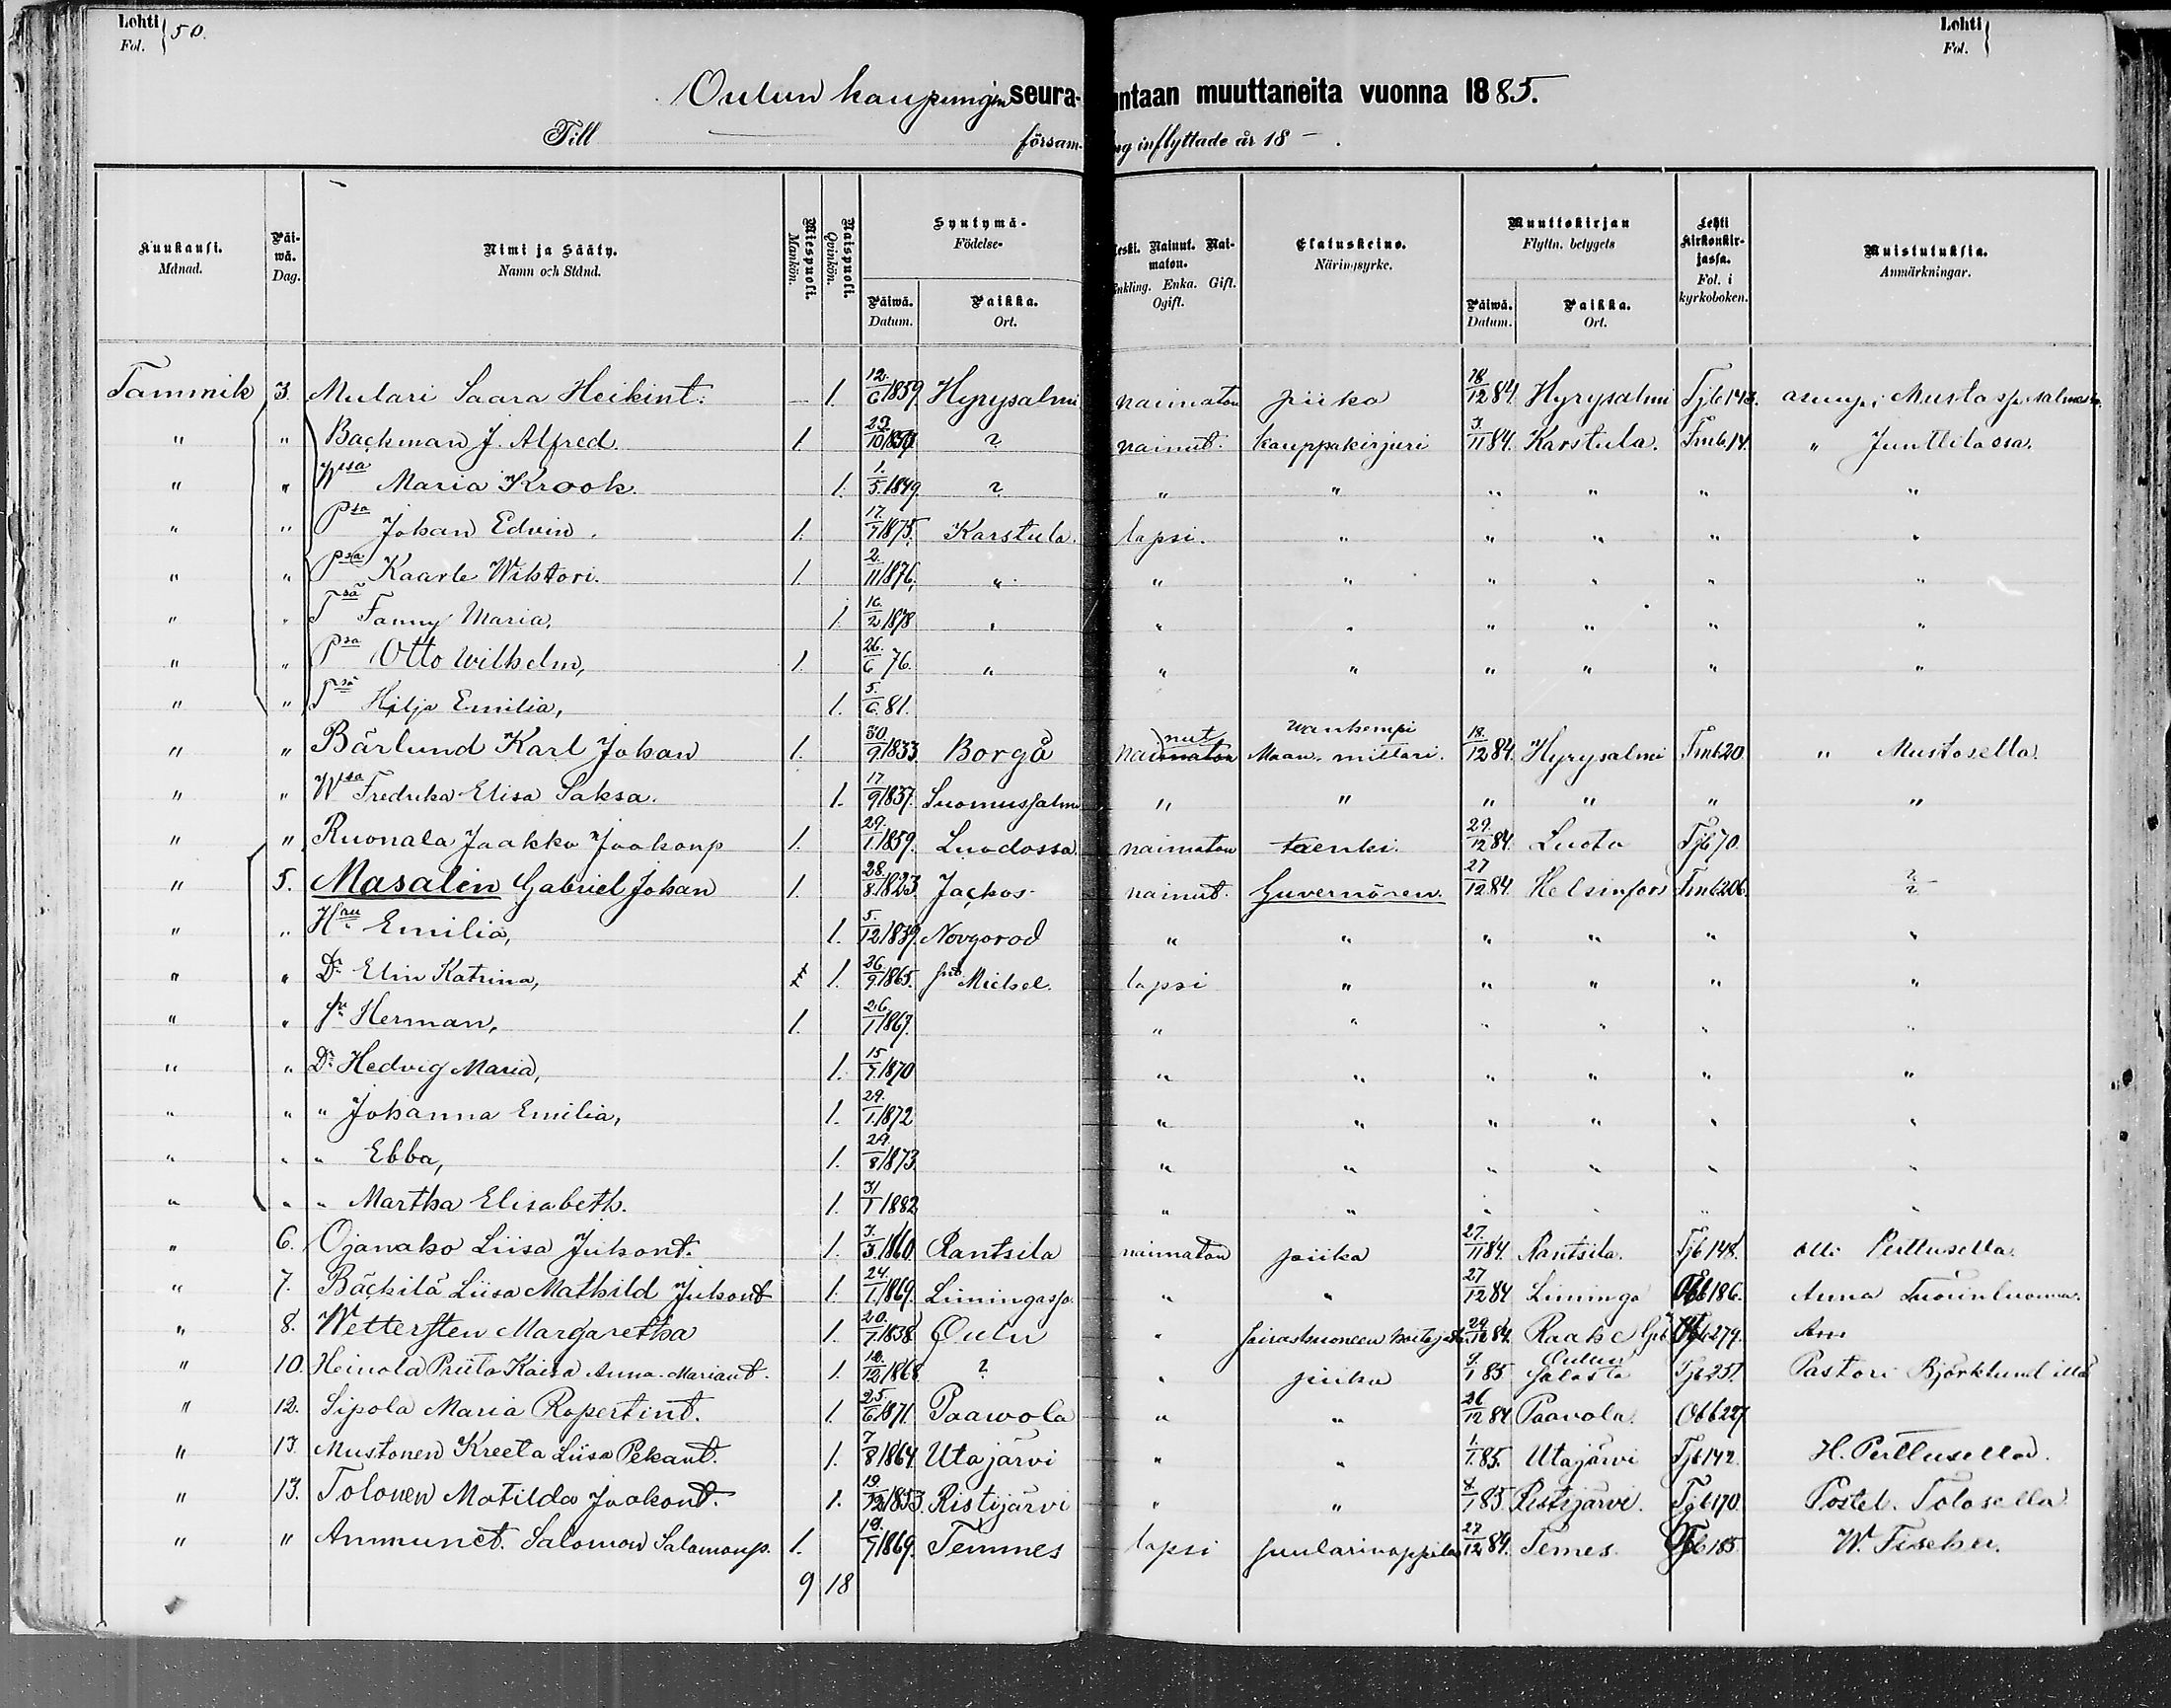 Lohti Fol. } 50. Lohti Fol. }
Oulun kaupungin seurakuntaan muuttaneita vuonna 1885.
Till försam- ng inflyttade år 18 - .
Kuukausi. Månad. Päiwä. Dag. Nimi ja Sääty. Namn och Stånd. Miespuoli. Mankön. Naispuoli. Qvinkön. Syntymä- Födelse- Päiwä. Datum. Paikka. Ort. Leski. Nainut. Naimaton. Enkling. Enka. Gift. Ogift. Elatuskeino. Näringsyrke. Muuttokirjan Flyttn. betygets Päiwä. Datum. Paikka. Ort. Lehti kirkonkirjassa. Fol. i kyrkoboken. Muistutuksia. Anmärkningar.
Tammik 3. Mulari Saara Heikint. 1. 12/6 1859. Hyrysalmi naimaton piika 18/12 84. Hyrysalmi Tjb143. asuu
" " Backman J. Alfred. 1. 29/10 ? nainut. kauppakirjuri 3/11 84. Karstula. Tmb14. " Junttilassa.
" " Wsa Maria Krook. 1. 1/5 1849. ? " " " " " "
" " Psa Johan Edvin. 1. 17/7 1875. Karstula. lapsi. " " " " "
" " Psa Kaarle Wiktori. 1. 2/11 1876. " " " " " " "
" " Tsä Fanny Maria. 1. 16/2 1878 " " " " " " "
" " Psa Otto Wilhelm, 1. 26/6 76. " " " " " " "
" " Tsä Hilja Emilia, 1. 5/6 81.
" " Bärlund Karl Johan 1. 30/9 1833 Borgå nainut wanhempi Maan. mittari. 18/12 84. Hyrysalmi Tmb20 " Mustosella.
" " Wsa Fredrika Elisa Saksa. 1. 17/9 1837. Suomussalmi " " " " " "
" " Ruonala Jaakko Jaakonp 1. 29/1 1859. Luodossa. naimaton renki. 29/12 84. Luoto Tjb70.
" 5. Masalin Gabriel Johan 1. 28/8 1823. Jackos nainut. Guvernören. 27/12 84. Helsinfors Tmb206. ?
" " Hru Emilia, 1. 5/12 1839. Novgorod " " " " " "
" " Dr Elin Katrina, 1. 26/9 1865. Michel. lapsi " " " " "
" " Sr Herman, 1. 26/1 1867. " " " " " "
" " Dr Hedvig Maria, 1. 15/7 1870 " " " " " "
" " " Johanna Emilia, 1. 29/1 1872 " " " " " "
" " " Ebba, 1. 29/8 1873. " " " " " "
" " " Martha Elisabeth. 1. 31/1 1882 " " " " " "
" 6. Ojanaho Liisa Juhont. 1. 3/3 1860. Rantsila naimaton piika 27/11 84. Rantsila. Tjb148. Olli Perttusella.
" 7. Bäckilä Liisa Mathild Juhont 1. 24/1 1869. Limingassa. " " 27/12 84 Liminga 186. Anna
" 8. Wettersten Margaretha 1. 20/7 1838 Oulu " sairashuoneen hoitajatar 29/12 84. Raahe 279.
" 10. Heinola Priita Kaisa Anna. Mariant. 1. 12/12 1868 ? " piika 9/1 85 Oulun Salosta Tjb251. Pastori Björklundilla
" 12. Sipola Maria Ropertint. 1. 25/6 1871. Paawola " " 26/12 84 Paavola. Obb227
" 13. Mustonen Kreeta Liisa Pekant. 1. 7/8 1864 Utajärvi " " 1/1 85. Utajärvi Tjb142. H. Perttusella.
" 13. Tolonen Matilda Jaakont. 1. 19/12 1853. Ristijärvi " " 8/1 85. Ristijärvi. Tjb170. Postel. Tolosella
" " Ammunet. Salomon Salamonp. 1. 19/7 1869. Temmes lapsi puularinoppilas 27/12 84. Temes. 185 W. Fischer.
9 18